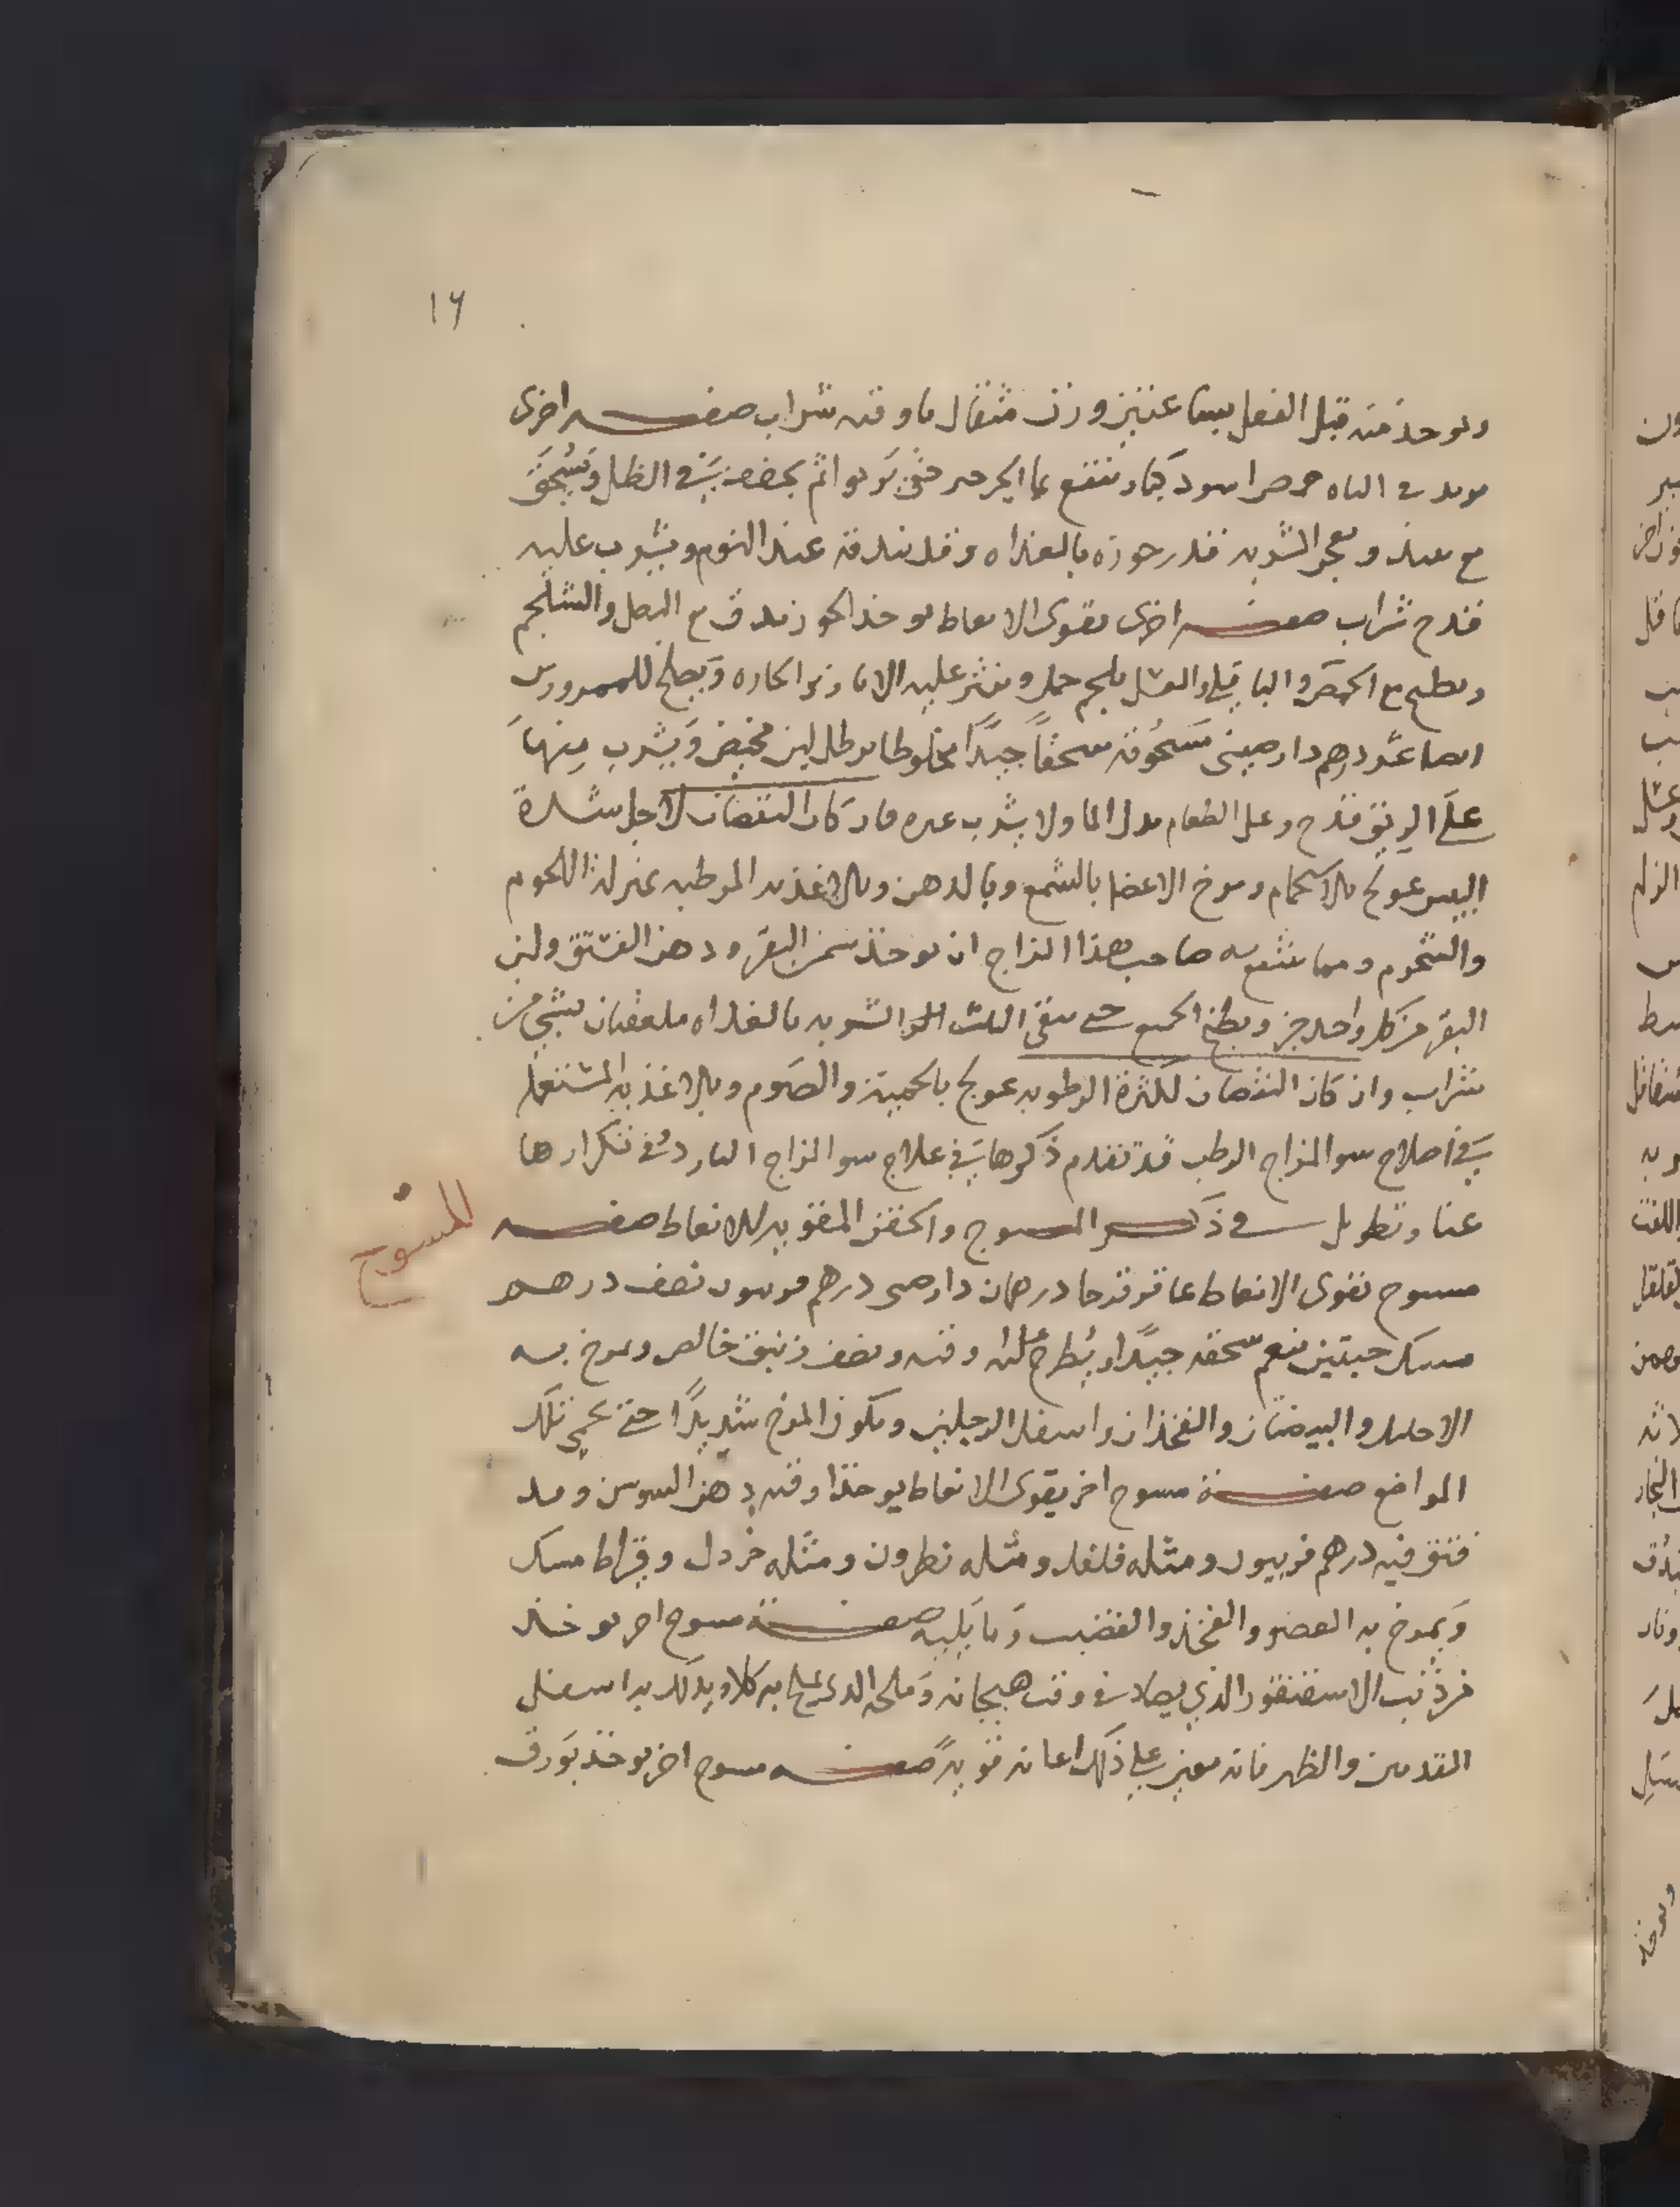 ١٦
ويوخذ منه قبل الفعل بساعتين وزن مثقال باوقيه شراب صفـــه اخرى
يزيد في الباه حمص اسود كبار ينقع بما الجرجير حتى يربوا ثم يجفف في الظل ويسحق
مع فانيذ ويعجن الشربه قدر جوزه بالغداه وقدر بندقه عند النوم ويشرب عليه
قدح شراب صفـــه اخرى يقوى الانعاط يوخذ الجوز يدق مع البصل والشلجم
ويطبخ مع الحمص والباقلي والعسل بلحم حمل وينثر عليه الابازير الحاره ويصلح للمبرودين
ايضا عشر درهم دارصيني مسحوقه سحقاً جيداً مخلوطا برطل لبن مخيض ويشرب منها
على الريق قدح وعلى الطعام بدل الما ولا يشرب غيره فان كان النقصان لاجل شدة
اليبس عولج بالاستحمام ومرخ الاعضا بالشمع وبالدهن وبالاغذيه المرطبه بمنزلة اللحوم
والشحوم ومما ينتفع به صاحب هذا المزاج ان يوخذ سمن البقر ودهن الفستق ولبن
البقر من كل واحد جز ويطبخ الجميع حتى يبقى الثلث الشربه بالغداه ملعقتان بشي من
شراب وان كان النقصان لكثرة الرطوبه عولج بالحمية والصوم وبالاغذيه المستعمله
في اصلاح سو المزاج الرطب قد تقدم ذكرها في علاج سو المزاج البارد وفي تكرارها
عنا وتطويل في ذكر المسوح والحقن المقويه للانعاط صفـــه
المسوح
مسوح يقوى الانعاط عاقرقرحا درهمان دارصيني درهم فربيون نصف درهم
مسك حبتين ينعم سحقه جيداً ويطرح عليه اوقيه ونصف زنبق خالص ويمرخ به
الاحليل والبيضتان والفخذان واسفل الرجلين ويكون المرخ شديداً حتى تحمى تلك
المواضع صفـــة مسوح اخر يقوى الانعاط يوخذ اوقيه دهن السوسن وقد
فتق فيه درهم فربيون ومثله فلفل ومثله نطرون ومثله خردل وقيراط مسك
ويمرخ به العضو والفخذ والقضيب وما يليه صفـــة مسوح اخر يوخذ
من ذنب الاسقنقور الذي يصاد في وقت هيجانه وملحه الذي يملح به كلاً ويدلك به اسفل
القدمين والظهر فانه معين على ذلك اعانه قويه صفـــه مسوح اخر يوخذ بورق